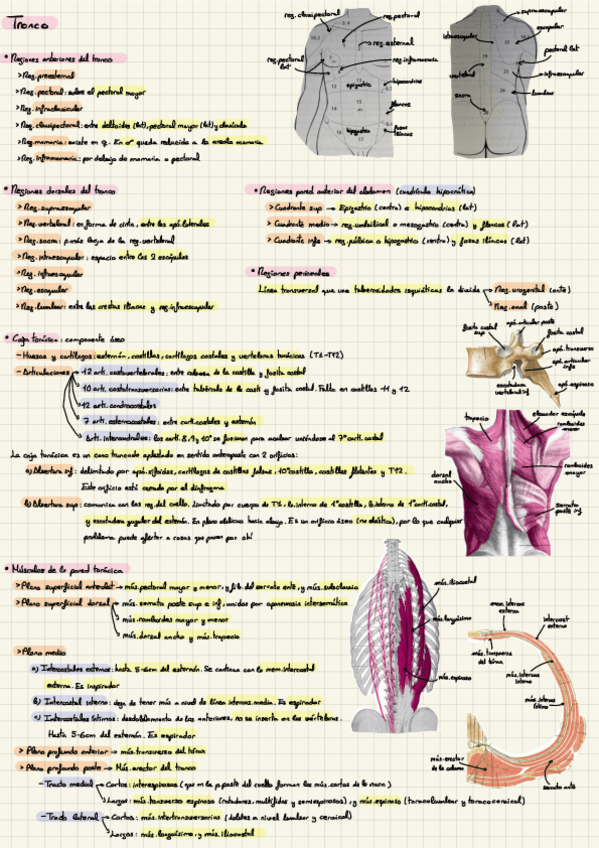 Tronco
• Regiones anteriores del tronco
> Reg. preesternal
> Reg. pectoral: sobre el pectoral mayor
> Reg. infraclavicular
> Reg. clavipectoral: entre deltoides (lat), pectoral mayor (lat) y clavícula
> Reg. mamaria: existe en ♀. En ♂ queda reducida a la areola mamaria
> Reg. inframamaria: por debajo de mamaria o pectoral
reg. clavipectoral
reg. pectoral
reg. esternal
reg. pectoral lat
reg. inframamaria
epigastrio
hipocondrios
flancos
hipogastrio
fosas ilíacas
supraescapular
escapular
interescapular
pectoral lat
vertebral
infraescapular
sacra
lumbar
• Regiones dorsales del tronco
> Reg. supraescapular
> Reg. vertebral: en forma de cinta, entre las apó. laterales
> Reg. sacra: p. más baja de la reg. vertebral
> Reg. intraescapular: espacio entre las 2 escápulas
> Reg. infraescapular
> Reg. escapular
> Reg. lumbar: entre las crestas ilíacas y reg. infraescapular
• Regiones pared anterior del abdomen (cuadrícula hipocrática)
> Cuadrante sup → Epigastrio (centro) e hipocondrios (lat)
> Cuadrante medio → reg. umbilical o mesogastrio (centro) y flancos (lat)
> Cuadrante infe → reg. púbica o hipogastrio (centro) y fosas ilíacas (lat)
• Regiones perineales
Línea transversal que une tuberosidades isquiáticas la divide
> Reg. urogenital (ante)
> Reg. anal (poste)
• Caja torácica: componente óseo
- Huesos y cartílagos: esternón, costillas, cartílagos costales y vertebras torácicas (T1-T12)
- Articulaciones
12 arti. costovertebrales: entre cabeza de la costilla y fosita costal
10 arti. costotransversarias: entre tubérculo de la costi y fosita costal. Falta en costillas 11 y 12
12 arti. condrocostales
7 arti. esternocostales: entre carti. costales y esternón
Arti. intercondrales: los carti. 8, 9 y 10º se fusionan para acabar uniéndose al 7º carti. costal
La caja torácica es un cono truncado aplastado en sentido anteroposte con 2 orificios:
a) Abertura inf: delimitado por apó. xifoides, cartílagos de costillas falsas, 10º costilla, costillas flotantes y T12.
Este orificio está cerrado por el diafragma
b) Abertura sup: comunica con las reg. del cuello. Limitado por cuerpo de T1, b. interno de 1º costilla, b. interno de 1º carti. costal,
y escotadura yugular del esternón. En plano oblicuo hacia abajo. Es un orificio óseo (no elástico), por lo que cualquier
problema puede afectar a cosas que pasan por ahí
fosita costal sup
apó. articular poste
fosita costal
apó. transversa
apó. articular infe
escotadura vertebral inf
apó. espinosa
trapecio
elevador escápula
romboides menor
romboides mayor
dorsal ancho
serrato poste inf
• Músculos de la pared torácica
> Plano superficial anterolat → mús. pectoral mayor y menor, y fib. del serrato ante, y mús. subclavio
> Plano superficial dorsal
mús. serrato poste sup e inf, unidos por aponeurosis interesemática
mús. romboides mayor y menor
mús. dorsal ancho y mús. trapecio
> Plano medio
a) Intercostales externos: hasta 5-6cm del esternón. Se continua con la mem. intercostal
externa. Es inspirador
b) Intercostal interno: deja de tener mús a nivel de línea intercos. media. Es espirador
c) Intercostales íntimos: desdoblamiento de los anteriores, no se inserta en las vértebras.
Hasta 5-6cm del esternón. Es espirador
> Plano profundo anterior → mús. transverso del tórax
> Plano profundo poste → Mús. erector del tronco
- Tracto medial
Cortos: interespinosos (que en la p. poste del cuello forman los mús. cortos de la nuca)
Largos: mús. transverso espinoso (rotadores, multífidos y semiespinosos), y mús. espinoso (toracolumbar y toracocervical)
- Tracto lateral
Cortos: mús. intertransversarios (dobles a nivel lumbar y cervical)
Largos: mús. longuísimo, y mús. iliocostal
mús. iliocostal
mús. longuísimo
mús. espinoso
mem. intercos externa
intercost externo
mús. transverso del tórax
mús. intercos interno
mús. intercos íntimo
mús. erector de la columna
serrato ante